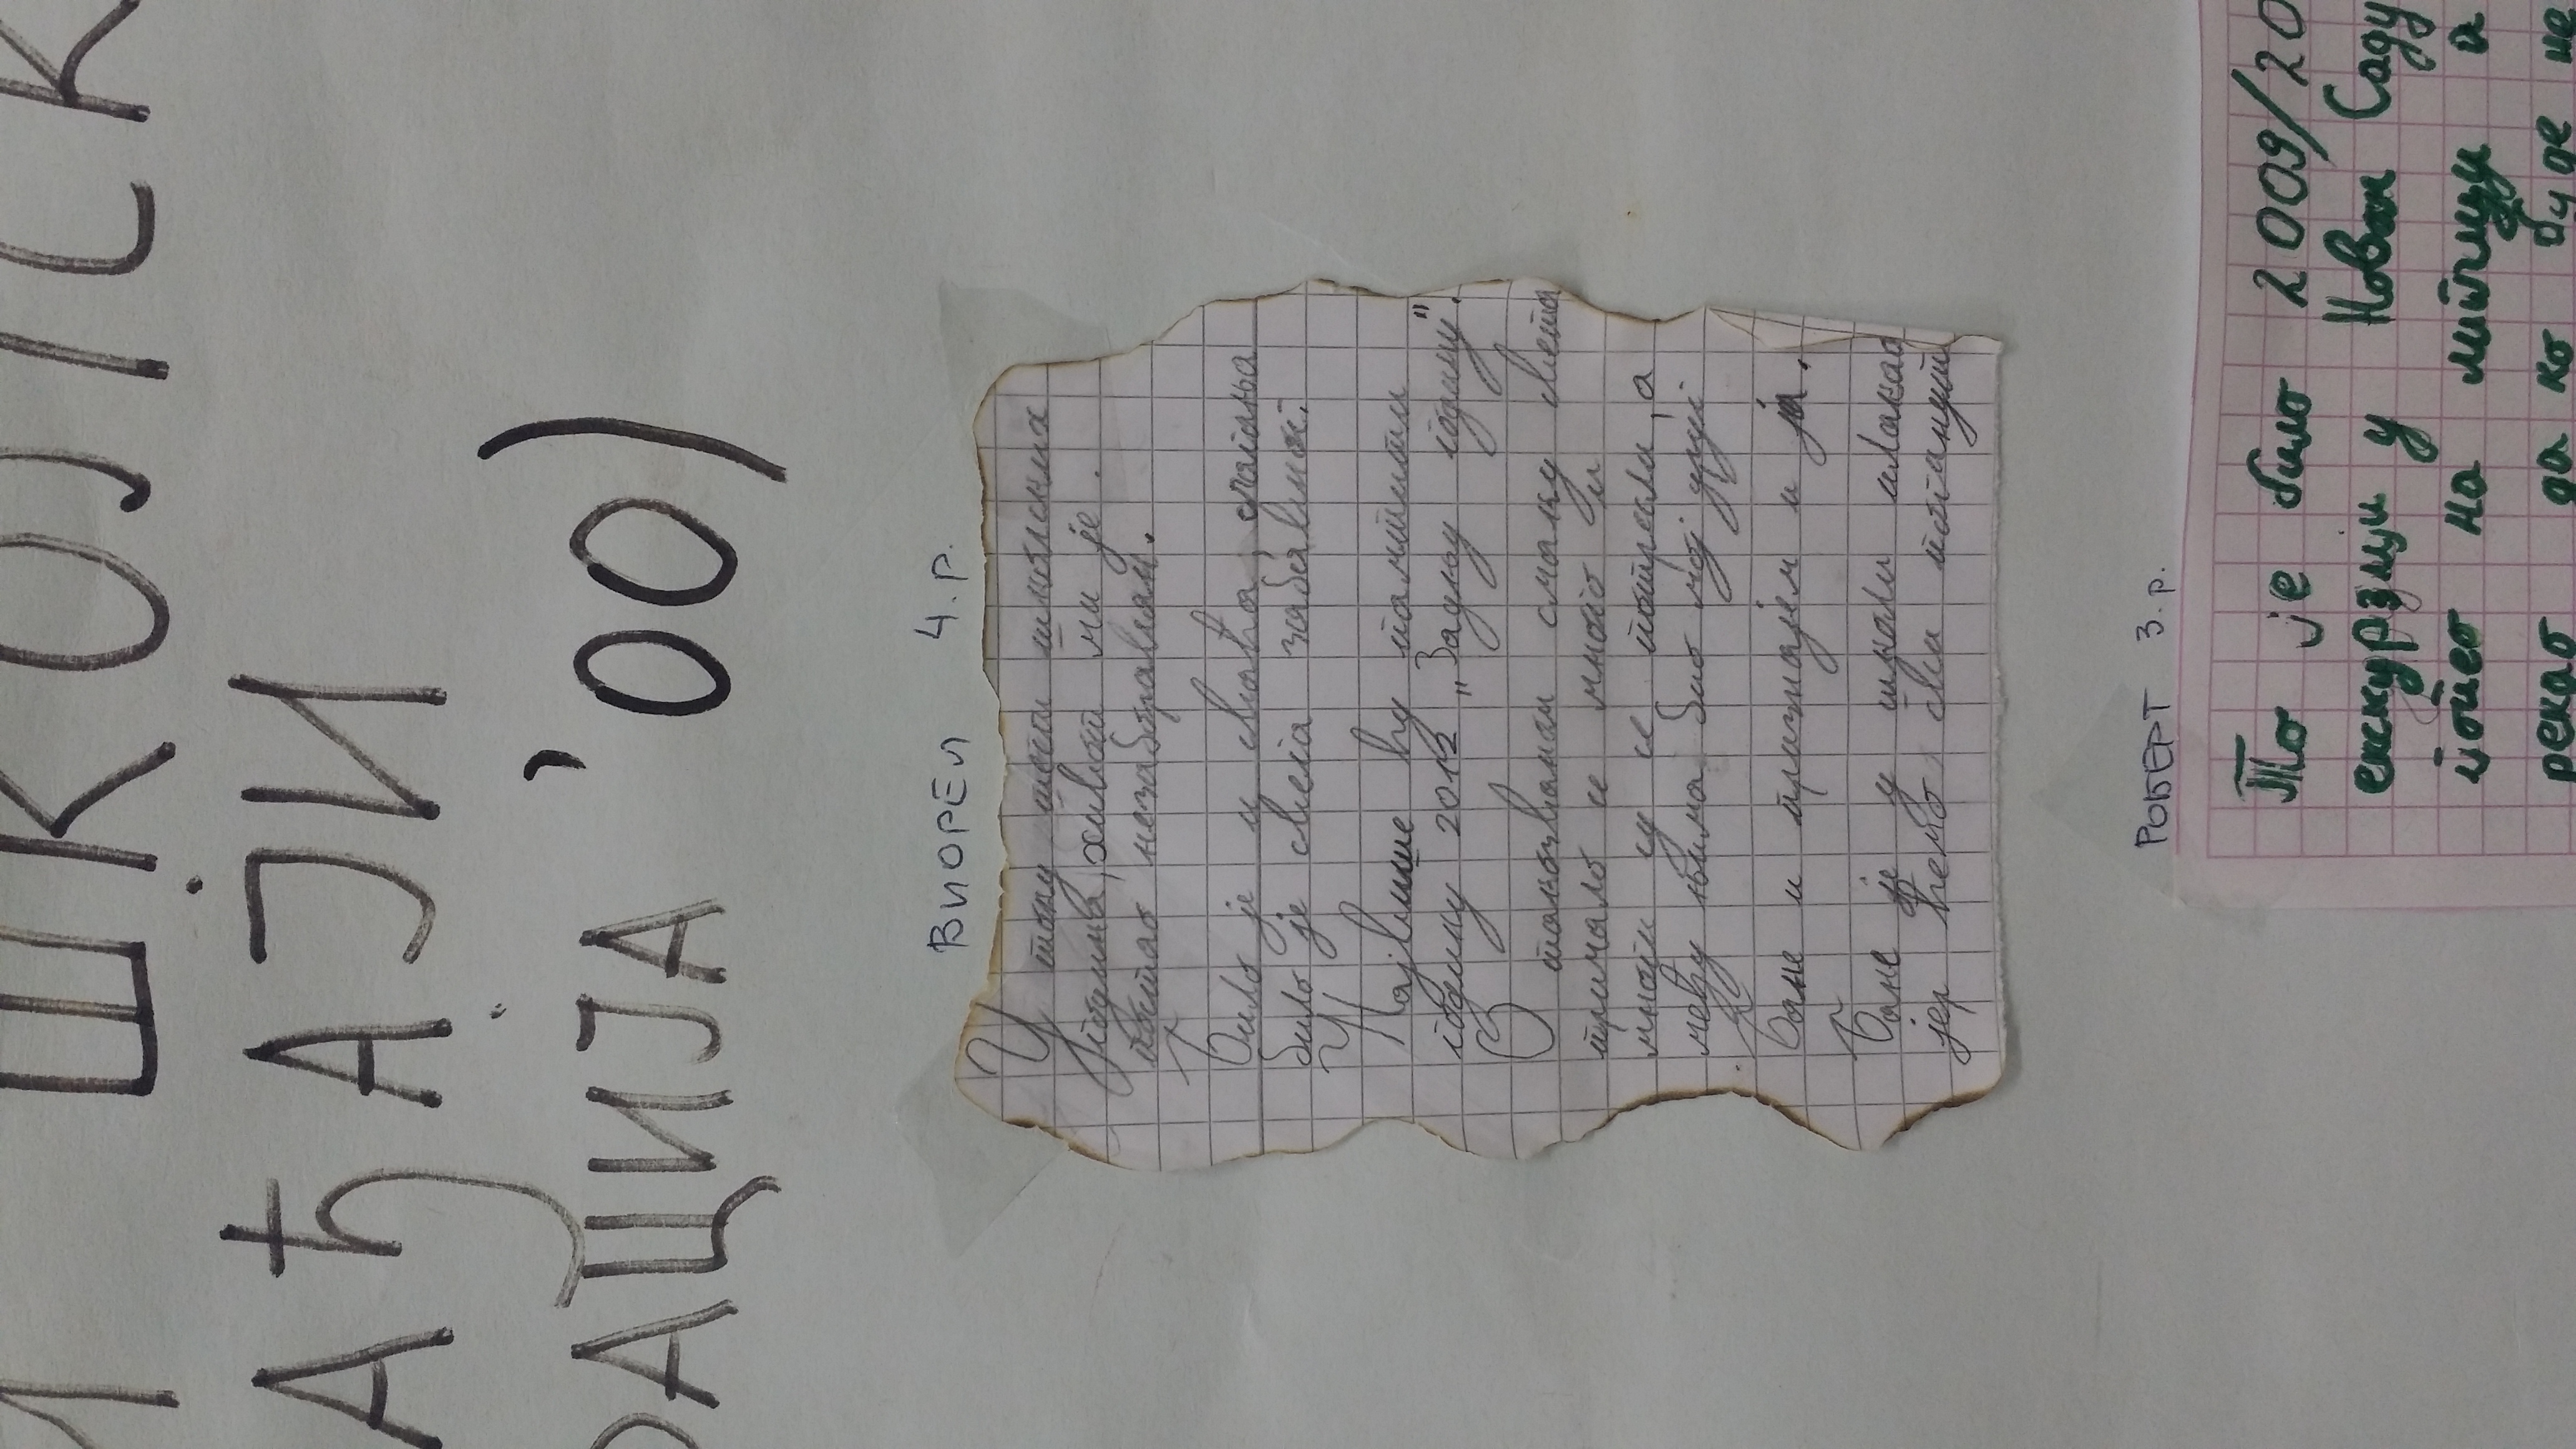 И ШКОЛСК
АЂАЈИ
РАЦИЈА '00)
ВИОРЕЛ 4. р.
У току шест школских
година, живот ми је
постао незабораван.
Било је и свађа, спајања
било је свега забавног.
Највише ћу памтити
годину 2012 „Задњу годину".
О такозваном смаку света
причало се много и
многи су се потресли, а
међу њима био мој друг
Бане и признајем и ја.
Бане је у школи плакао
јер ћемо сви погинути
РОБЕРТ 3. р.
То је било 2009/20
екскурзији у Новом Саду
попео на литицу и
рекао да ко буде не